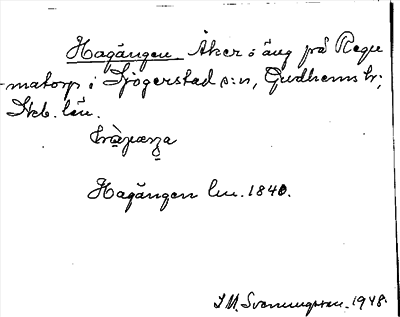 Hagängen Åker o äng på Regu
matorp i Sjogerstad s:n, Gudhems hr,
Skb. län.
Hagängen lm. 1840.
I M. Svenungsson. 1948.